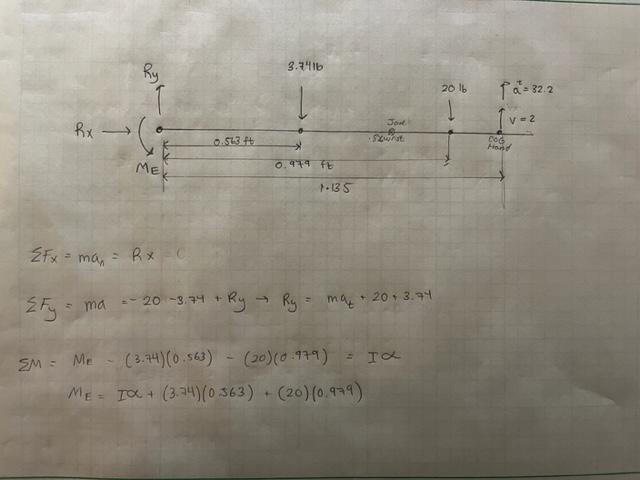 Ry
3.74lb
20 lb
a^t = 32.2
V = 2
Rx
Joint
COG
Hand
0.563 ft
ME
0.979 ft
1.135
ΣFx = man = Rx = 0
ΣFy = ma = -20 -3.74 + Ry → Ry = mat + 20 + 3.74
ΣM = ME - (3.74)(0.563) - (20)(0.979) = Iα
ME = Iα + (3.74)(0.563) + (20)(0.979)